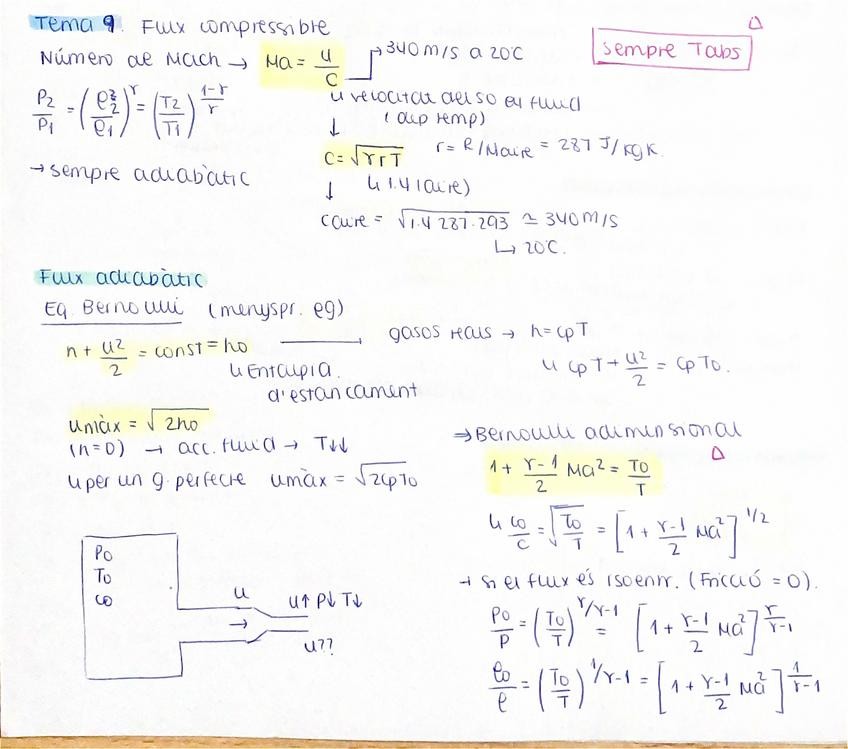 Tema 9. Flux compressible
Sempre Tabs
Número de Mach → Ma = u/c → 340 m/s a 20°C
↳ velocitat del so el fluid
(dep temp)
P2/P1 = (ρ2/ρ1)^γ = (T2/T1)^((1-γ)/γ)
→ sempre adiabàtic
c = √(γrT) r = R/Maire = 287 J/kg K.
↳ 1.4 (aire)
caire = √(1.4 287.293) ≃ 340 m/s
↳ 20°C.
Flux adiabàtic
Eq. Bernoulli (menyspr. eg)
h + u²/2 = const = h0 → gasos reals → h = cpT
↳ Entalpia d'estancament
↳ cpT + u²/2 = cpT0.
umàx = √(2h0)
(h=0) → acc. fluid → T↓↓
↳ per un g. perfecte umàx = √(2cpT0)
⇒ Bernoulli adimensional
1 + (γ-1)/2 Ma² = T0/T
↳ c0/c = √(T0/T) = [1 + (γ-1)/2 Ma²]^(1/2)
→ si el flux és isoentr. (Fricció = 0).
P0/P = (T0/T)^(γ/γ-1) = [1 + (γ-1)/2 Ma²]^(γ/(γ-1))
ρ0/ρ = (T0/T)^(1/γ-1) = [1 + (γ-1)/2 Ma²]^(1/(γ-1))
P0
T0
c0
u
u↑ P↓ T↓
u??